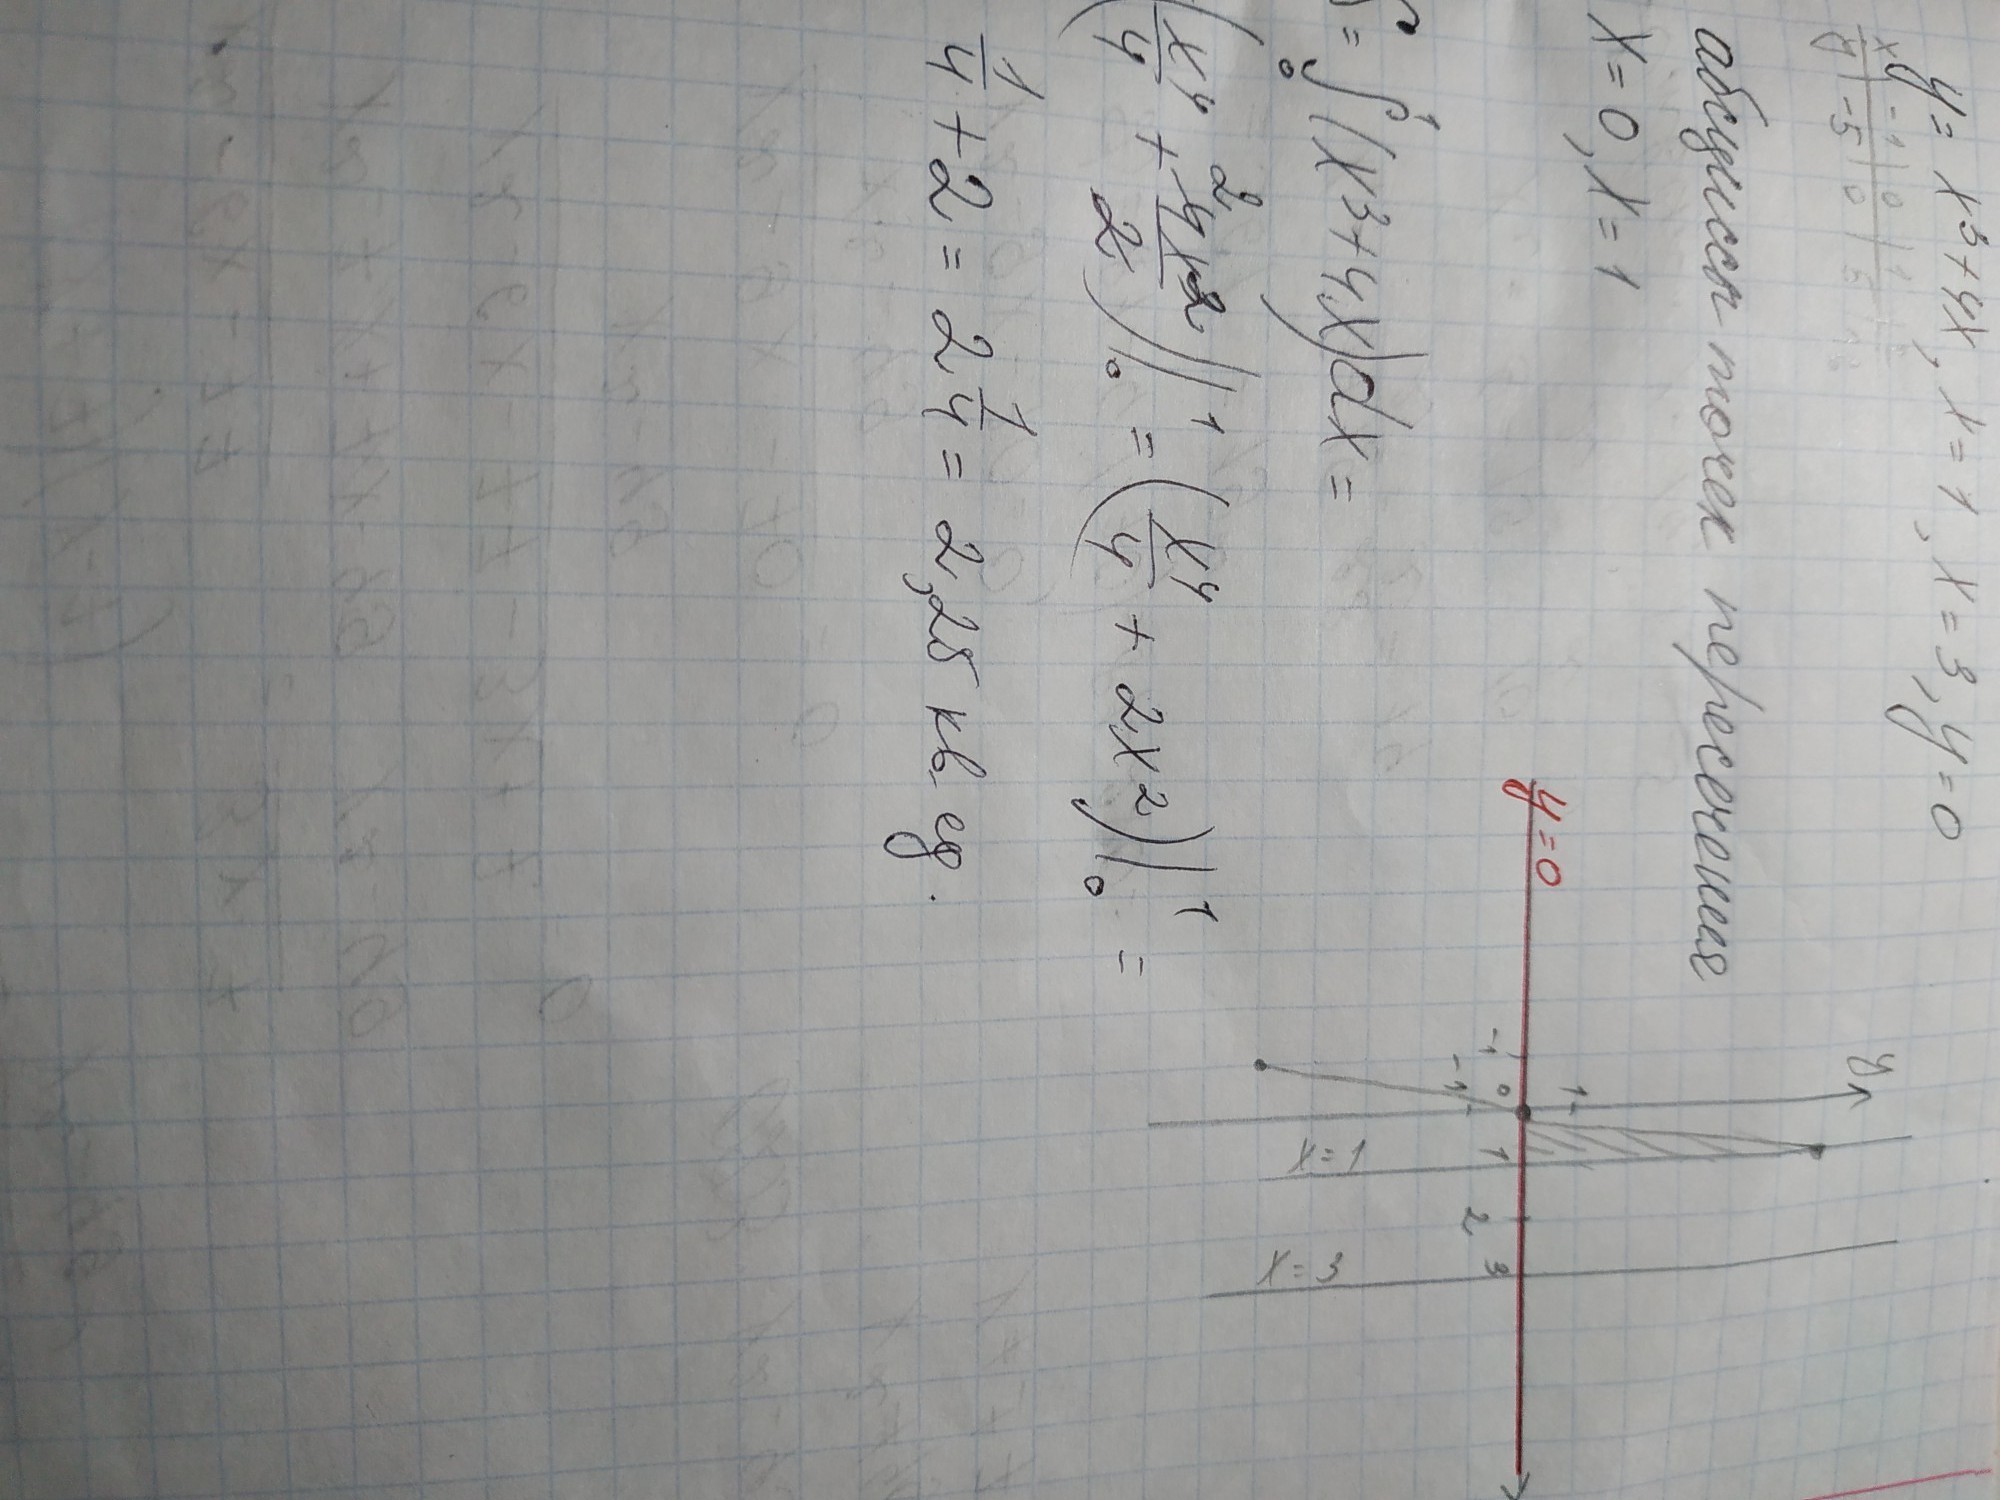 y = x³+4x, x=1, x=3, y=0
x | -1 | 0 | 1
y | -5 | 0 | 5
абсциссы точек пересечения
x=0, x=1
S = ∫₀¹ (x³+4x)dx =
(x⁴/4 + 4x²/2)|₀¹ = (x⁴/4 + 2x²)|₀¹ =
1/4 + 2 = 2 1/4 = 2,25 кв. ед.
y
y=0
1
-1 0 1 2 3
-1
x=1
x=3